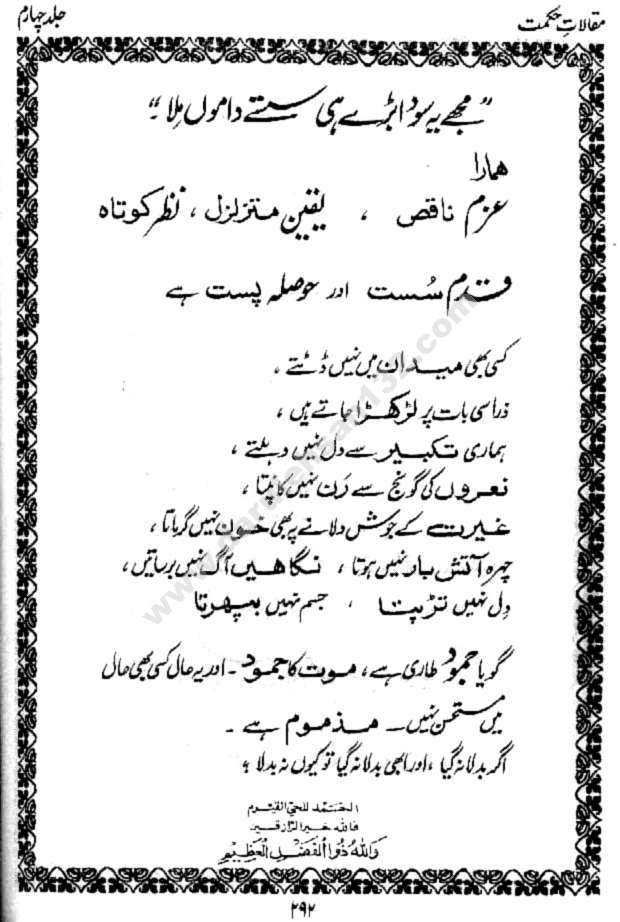 مقالاتِ حکمت
جلد چہارم
"مجھے یہ سودا بڑے ہی سستے داموں مِلا۔"
ھمارا
عزم ناقص ، یقین متزلزل ، نظر کوتاہ
قدم سُست اور حوصلہ پست ہے
کسی بھی میدان میں نہیں ڈٹتے ،
ذرا سی بات پر لڑکھڑا جاتے ہیں ،
ہماری تکبیر سے دل نہیں دہلتے ،
نعروں کی گونج سے رَن نہیں کانپتا ،
غیرت کے جوش دلانے پر بھی خون نہیں گرماتا ،
چہرہ آتش بار نہیں ہوتا ، نگاھیں آگ نہیں برساتیں ،
دِل نہیں تڑپتا ، جسم نہیں بپھرتا
گویا جمود طاری ہے ، موت کا جمود ۔ اور یہ حال کسی بھی حال
میں مستحسن نہیں ۔ مذموم ہے ۔
اگر بدلا نہ گیا ، اور ابھی بدلا نہ گیا تو کیوں نہ بدلا ؟
الحَمْد للحیّ القیّوم
فاللہ خیر الرّازقین
وَاللهُ ذُوالْفَضْلِ الْعَظِيْمِ
۲۹۲